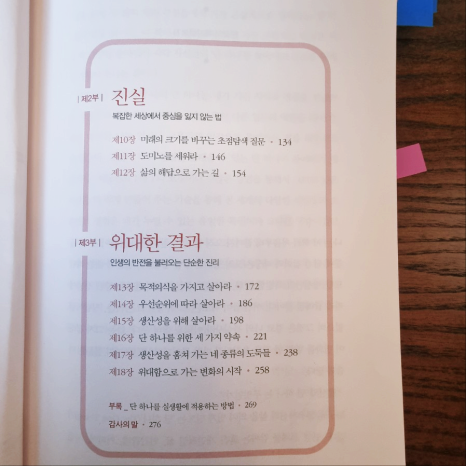 제2부
진실
복잡한 세상에서 중심을 잃지 않는 법
제10장 미래의 크기를 바꾸는 초점탐색 질문 · 134
제11장 도미노를 세워라 · 146
제12장 삶의 해답으로 가는 길 · 154
제3부
위대한 결과
인생의 반전을 불러오는 단순한 진리
제13장 목적의식을 가지고 살아라 · 172
제14장 우선순위에 따라 살아라 · 186
제15장 생산성을 위해 살아라 · 198
제16장 단 하나를 위한 세 가지 약속 · 221
제17장 생산성을 훔쳐 가는 네 종류의 도둑들 · 238
제18장 위대함으로 가는 변화의 시작 · 258
부록 _ 단 하나를 실생활에 적용하는 방법 · 269
감사의 말 · 276